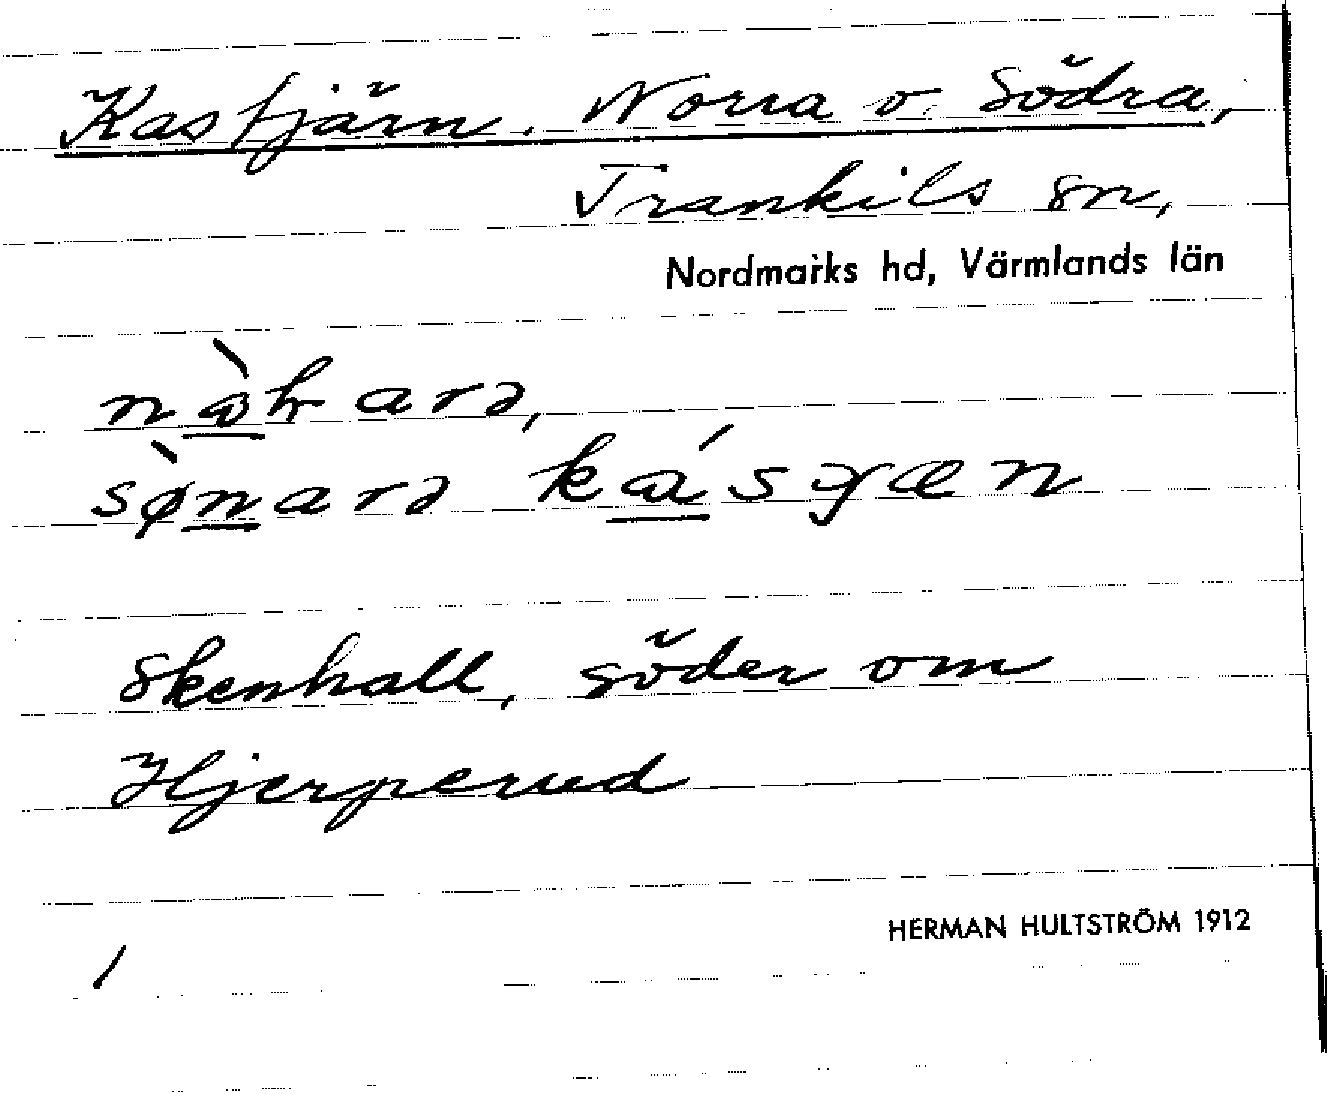 Kastjärn, Norra o. Södra,
Trankils sn,
Nordmarks hd, Värmlands län
Skenhall, söder om
Hjerperud
HERMAN HULTSTRÖM 1912
/